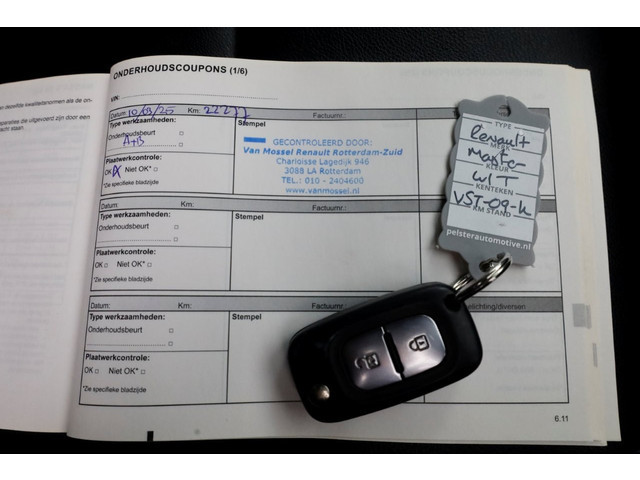 ONDERHOUDSCOUPONS (1/6)
VIN:
Datum: 10/03/25 Km: 22277 Factuurnr.:
Type werkzaamheden:
Onderhoudsbeurt
A+B
Plaatwerkcontrole:
OK Niet OK*
*Zie specifieke bladzijde
Stempel
GECONTROLEERD DOOR:
Van Mossel Renault Rotterdam-Zuid
Charloisse Lagedijk 946
3088 LA Rotterdam
TEL.: 010 - 2404600
www.vanmossel.nl
Datum: Km: Factuurnr.:
Type werkzaamheden:
Onderhoudsbeurt
Plaatwerkcontrole:
OK Niet OK*
*Zie specifieke bladzijde
Stempel
Datum: Km: Factuurnr.: lichting/diversen
Type werkzaamheden:
Onderhoudsbeurt
Plaatwerkcontrole:
OK Niet OK*
*Zie specifieke bladzijde
Stempel
6.11
TYPE
Renault
MERK
Master
KLEUR
WIT
KENTEKEN
VST-09-K
KM STAND
pelsterautomotive.nl